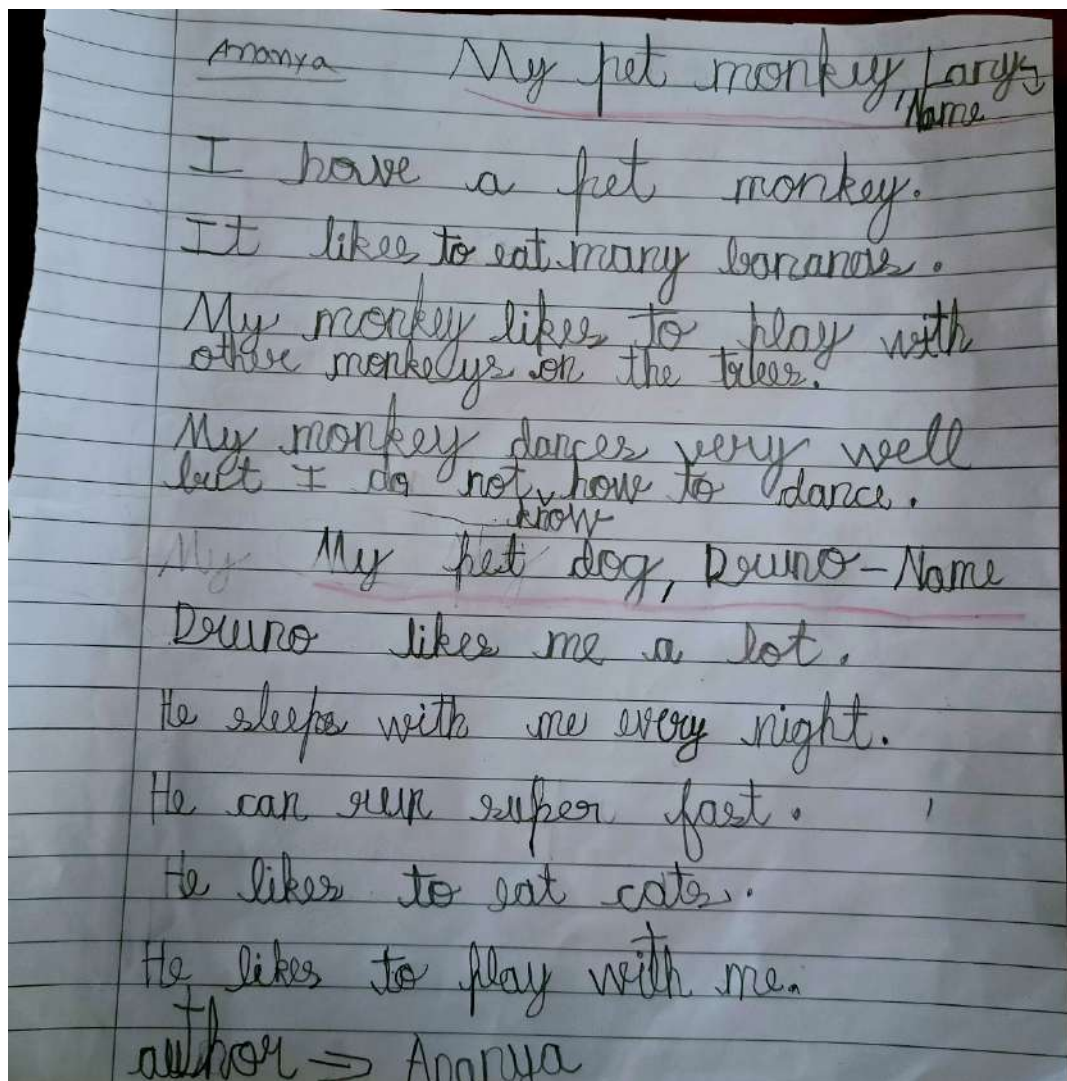 Ananya My pet monkey, Larys
Name
I have a pet monkey.
It likes to eat many bananas.
My monkey likes to play with
other monkeys on the trees.
My monkey dances very well
but I do not how to dance.
know
My My pet dog, Druno - Name
Druno likes me a lot.
He sleeps with me every night.
He can run super fast.
He likes to eat cats.
He likes to play with me.
author ⇒ Ananya